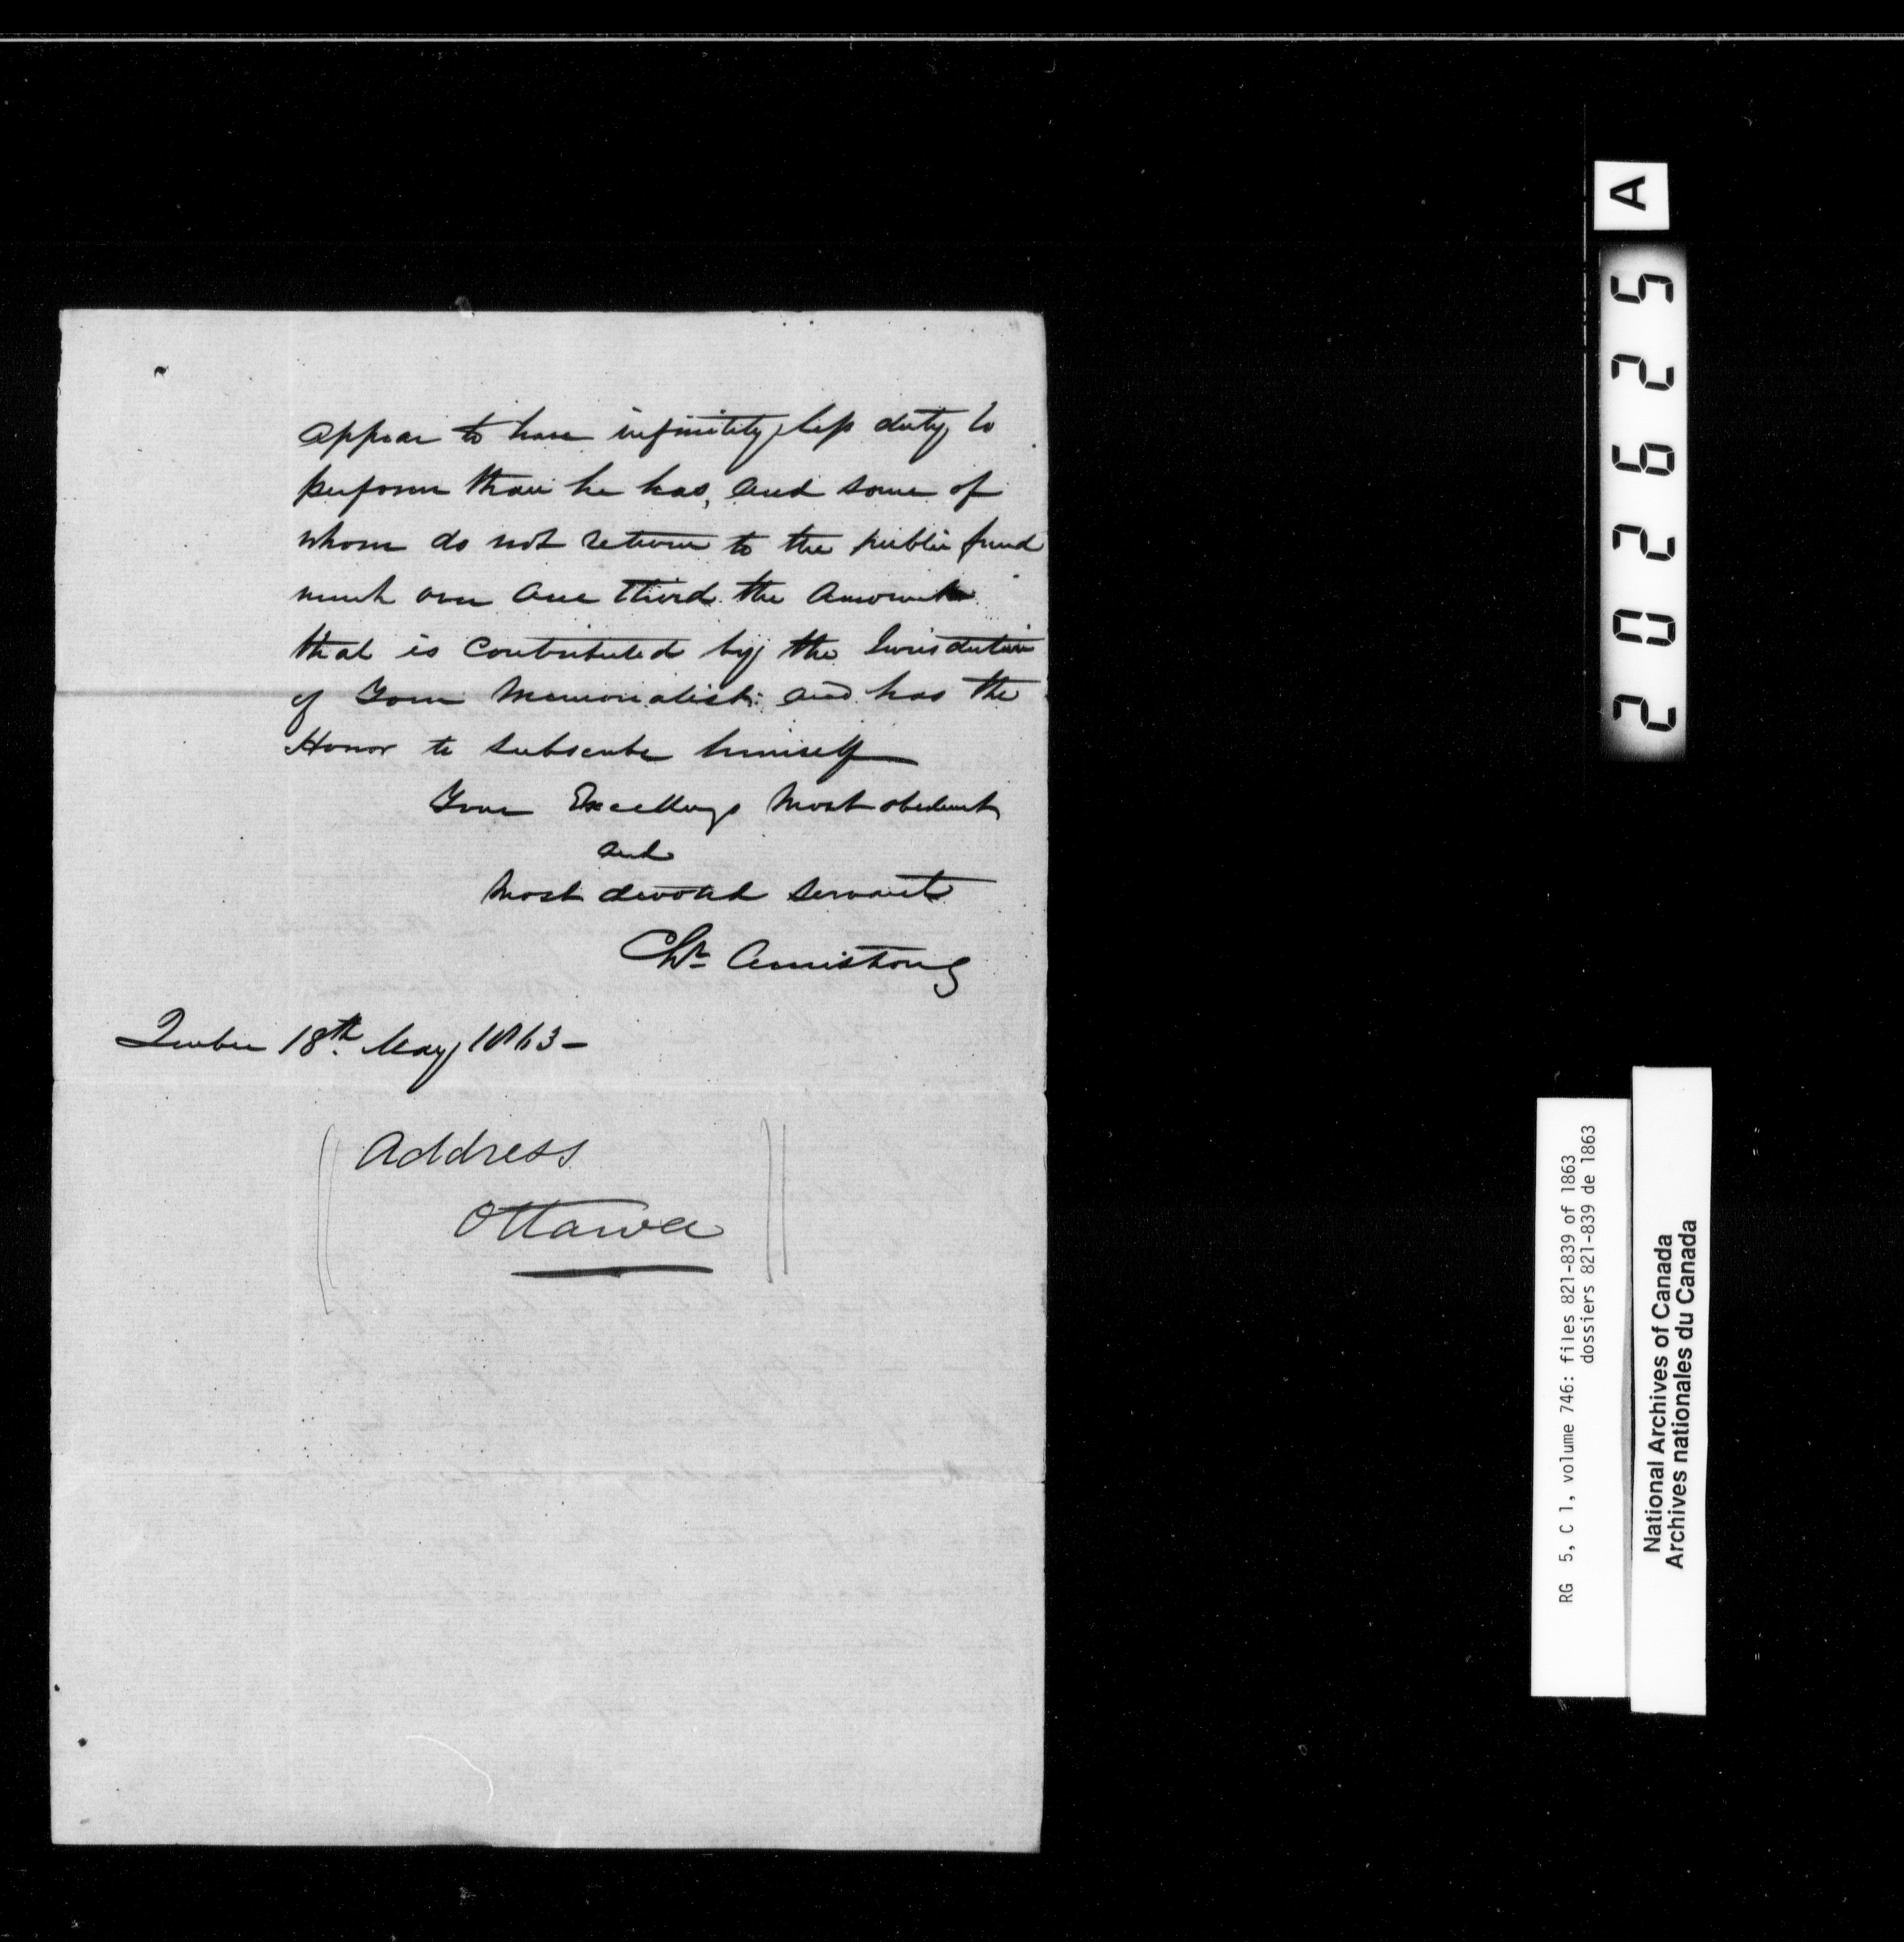 appear to have infinitely less duty to
perform than he has, and some of
whom do not return to the public fund
much over one third the amount
that is contributed by the Jurisdiction
of Your Memorialist: and has the
Honor to subscribe himself
Your Excellencys Most obedient
and
Most devoted servant
Chr. Armstrong
Quebec 18th. May 1863 –
Address
Ottawa
A
202625
RG 5, C 1, volume 746: files 821-839 of 1863
dossiers 821-839 de 1863
National Archives of Canada
Archives nationales du Canada